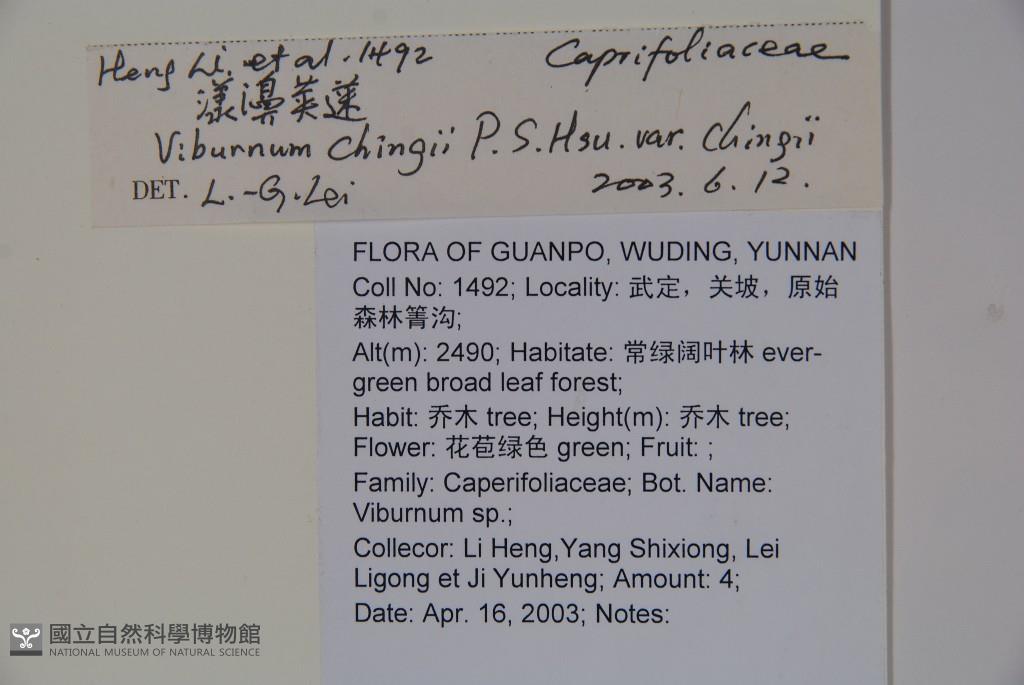 Heng Li. et al. 1492 Caprifoliaceae
漾濞荚蒾
Viburnum chingii P.S.Hsu. var. Chingii
DET. L.-G.Lei 2003. 6. 12.
FLORA OF GUANPO, WUDING, YUNNAN
Coll No: 1492; Locality: 武定，关坡，原始
森林箐沟;
Alt(m): 2490; Habitate: 常绿阔叶林 ever-
green broad leaf forest;
Habit: 乔木 tree; Height(m): 乔木 tree;
Flower: 花苞绿色 green; Fruit: ;
Family: Caperifoliaceae; Bot. Name:
Viburnum sp.;
Collecor: Li Heng,Yang Shixiong, Lei
Ligong et Ji Yunheng; Amount: 4;
Date: Apr. 16, 2003; Notes:
國立自然科學博物館
NATIONAL MUSEUM OF NATURAL SCIENCE